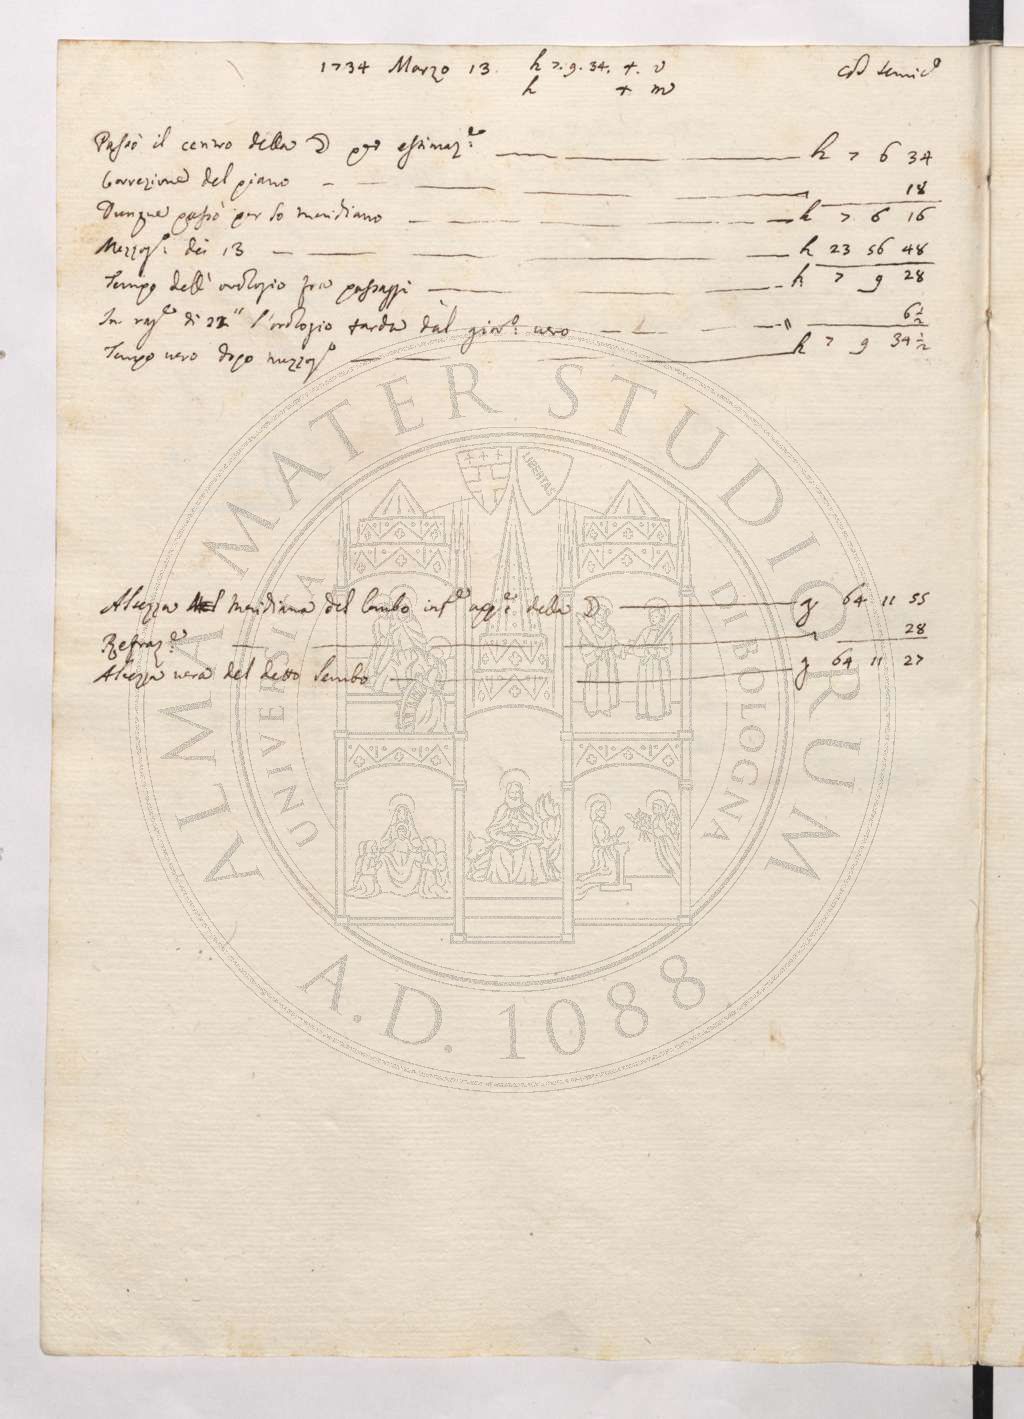 1734 Marzo 13. h 7. 9. 34. t. v
h t m
col semic.º
Passò il centro della ☽ per estimaz.e h 7 6 34
Correzione del piano 18
Dunque passò per lo meridiano h 7 6 16
Mezzog.º dei 13 h 23 56 48
Tempo dell' orologio fra passaggi h 7 9 28
In rag.e di 22" l'orologio tarda dal gior.º vero " 6 ½
Tempo vero dopo mezzog.º h 7 9 34 ½
Altezza meridiana del lembo inf.e app.e della ☽ g 64 11 55
Refraz.e 28
Altezza vera del detto lembo g 64 11 27
ALMA MATER STUDIORUM
UNIVERSITÀ DI BOLOGNA
LIBERTAS
A.D. 1088